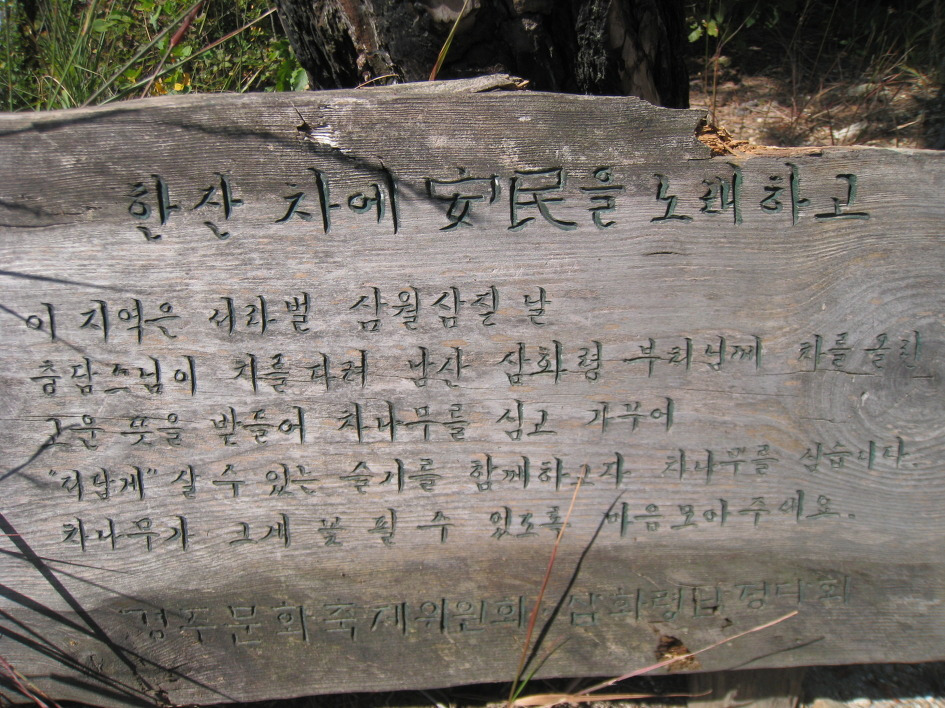 한잔 차에 安民을 노래하고
이 지역은 서라벌 삼월삼짇 날
충담스님이 차를 다려 남산 삼화령 부처님께 차를 올린
고운 뜻을 받들어 차나무를 심고 가꾸어
"되답게" 살 수 있는 슬기를 함께하고자 차나무를 심습니다.
차나무가 그게 꽃 필 수 있도록 마음모아주세요.
경주문화축제위원회·삼화령 정다회